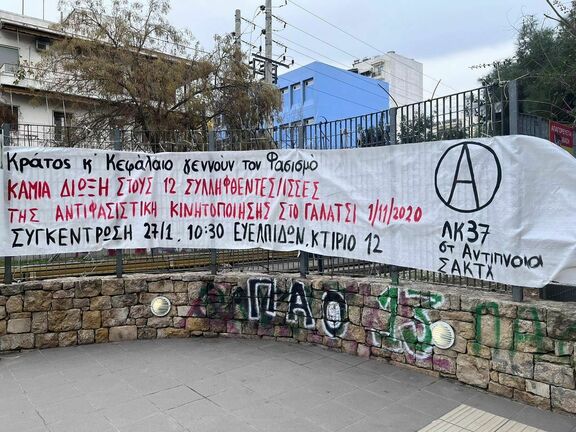 Κράτος κ' Κεφάλαιο γεννούν τον Φασισμό
ΚΑΜΙΑ ΔΙΩΞΗ ΣΤΟΥΣ 12 ΣΥΛΛΗΦΘΕΝΤΕΣ/ΙΣΣΕΣ
ΤΗΣ ΑΝΤΙΦΑΣΙΣΤΙΚΗ ΚΙΝΗΤΟΠΟΙΗΣΗΣ ΣΤΟ ΓΑΛΑΤΣΙ 1/11/2020
ΣΥΓΚΕΝΤΡΩΣΗ 27/1, 10:30 ΕΥΕΛΠΙΔΩΝ, ΚΤΙΡΙΟ 12
Α
ΛΚ37
στ Αντίπνοια
ΣΑΚΤΑ
ΠΑΟ 13
ΠΑ